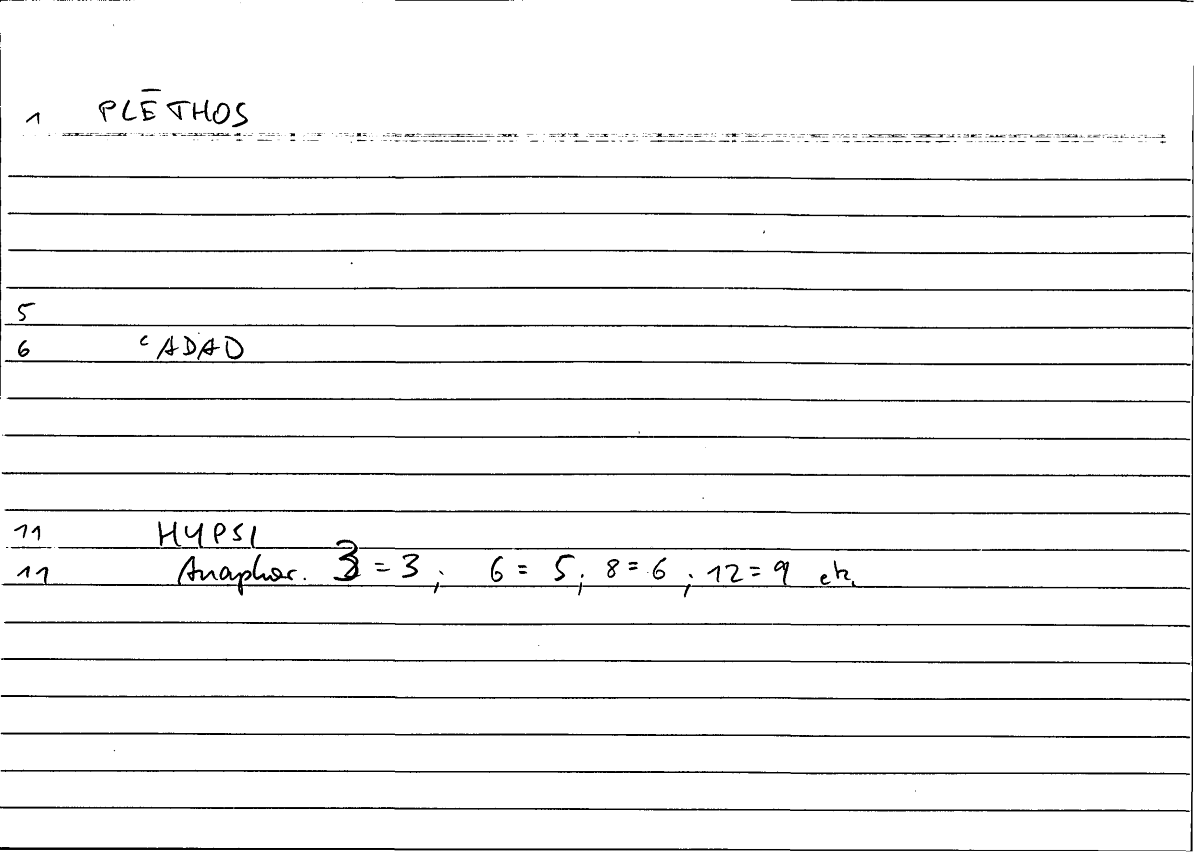 1 PLĒTHOS
5
6 ʿADAD
11 HYPSI
11 Anaphor. 3 = 3; 6 = 5; 8 = 6; 12 = 9 etc.